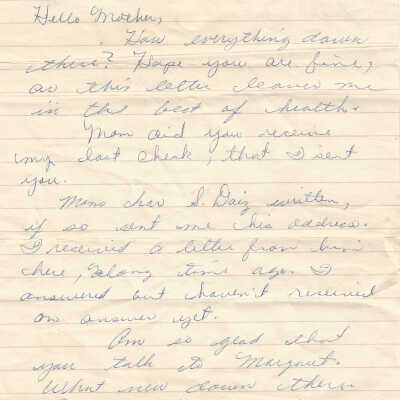 Hello Mother,
How everything down
there? Hope you are fine,
as this letter leaves me
in the best of health.
Mom did you receive
my last check, that I sent
you.
Moms has S. Daiz written,
if so sent me his address.
I received a letter from him
here, long time ago. I
answered but haven't received
an answer yet.
Am so glad that
you talk to Margaut.
What new down there